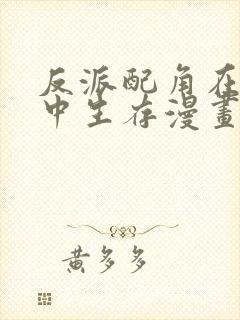 反派配角在
中生存漫畫
黃多多